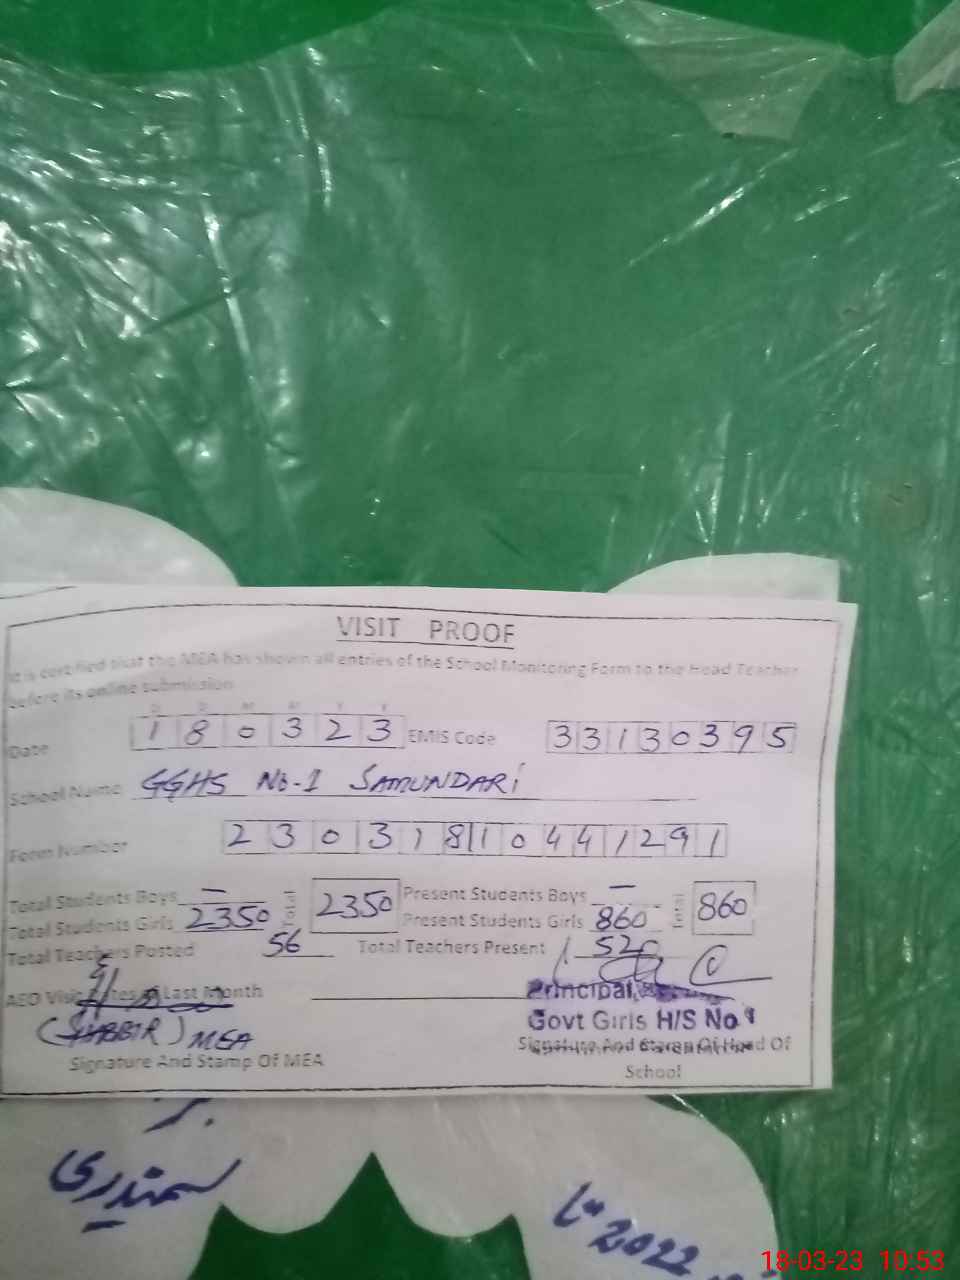 VISIT PROOF
It is certified that the MEA has shown all entries of the School Monitoring Form to the Head Teacher
before its online submission
D D M M Y Y
Date 180323 EMIS Code 33130395
School Name GGHS No-1 SAMUNDARI
Form Number 23031810441291
Total Students Boys — Total 2350 Present Students Boys — Total 860
Total Students Girls 2350 Present Students Girls 860
Total Teachers Posted 56 Total Teachers Present 52
AEO Visit Dates of Last Month
Principal
Govt Girls H/S No 1
(SHABBIR) MEA
Signature And Stamp Of MEA
Signature And Stamp Of Head Of
School
سمندری
2022
18-03-23 10:53